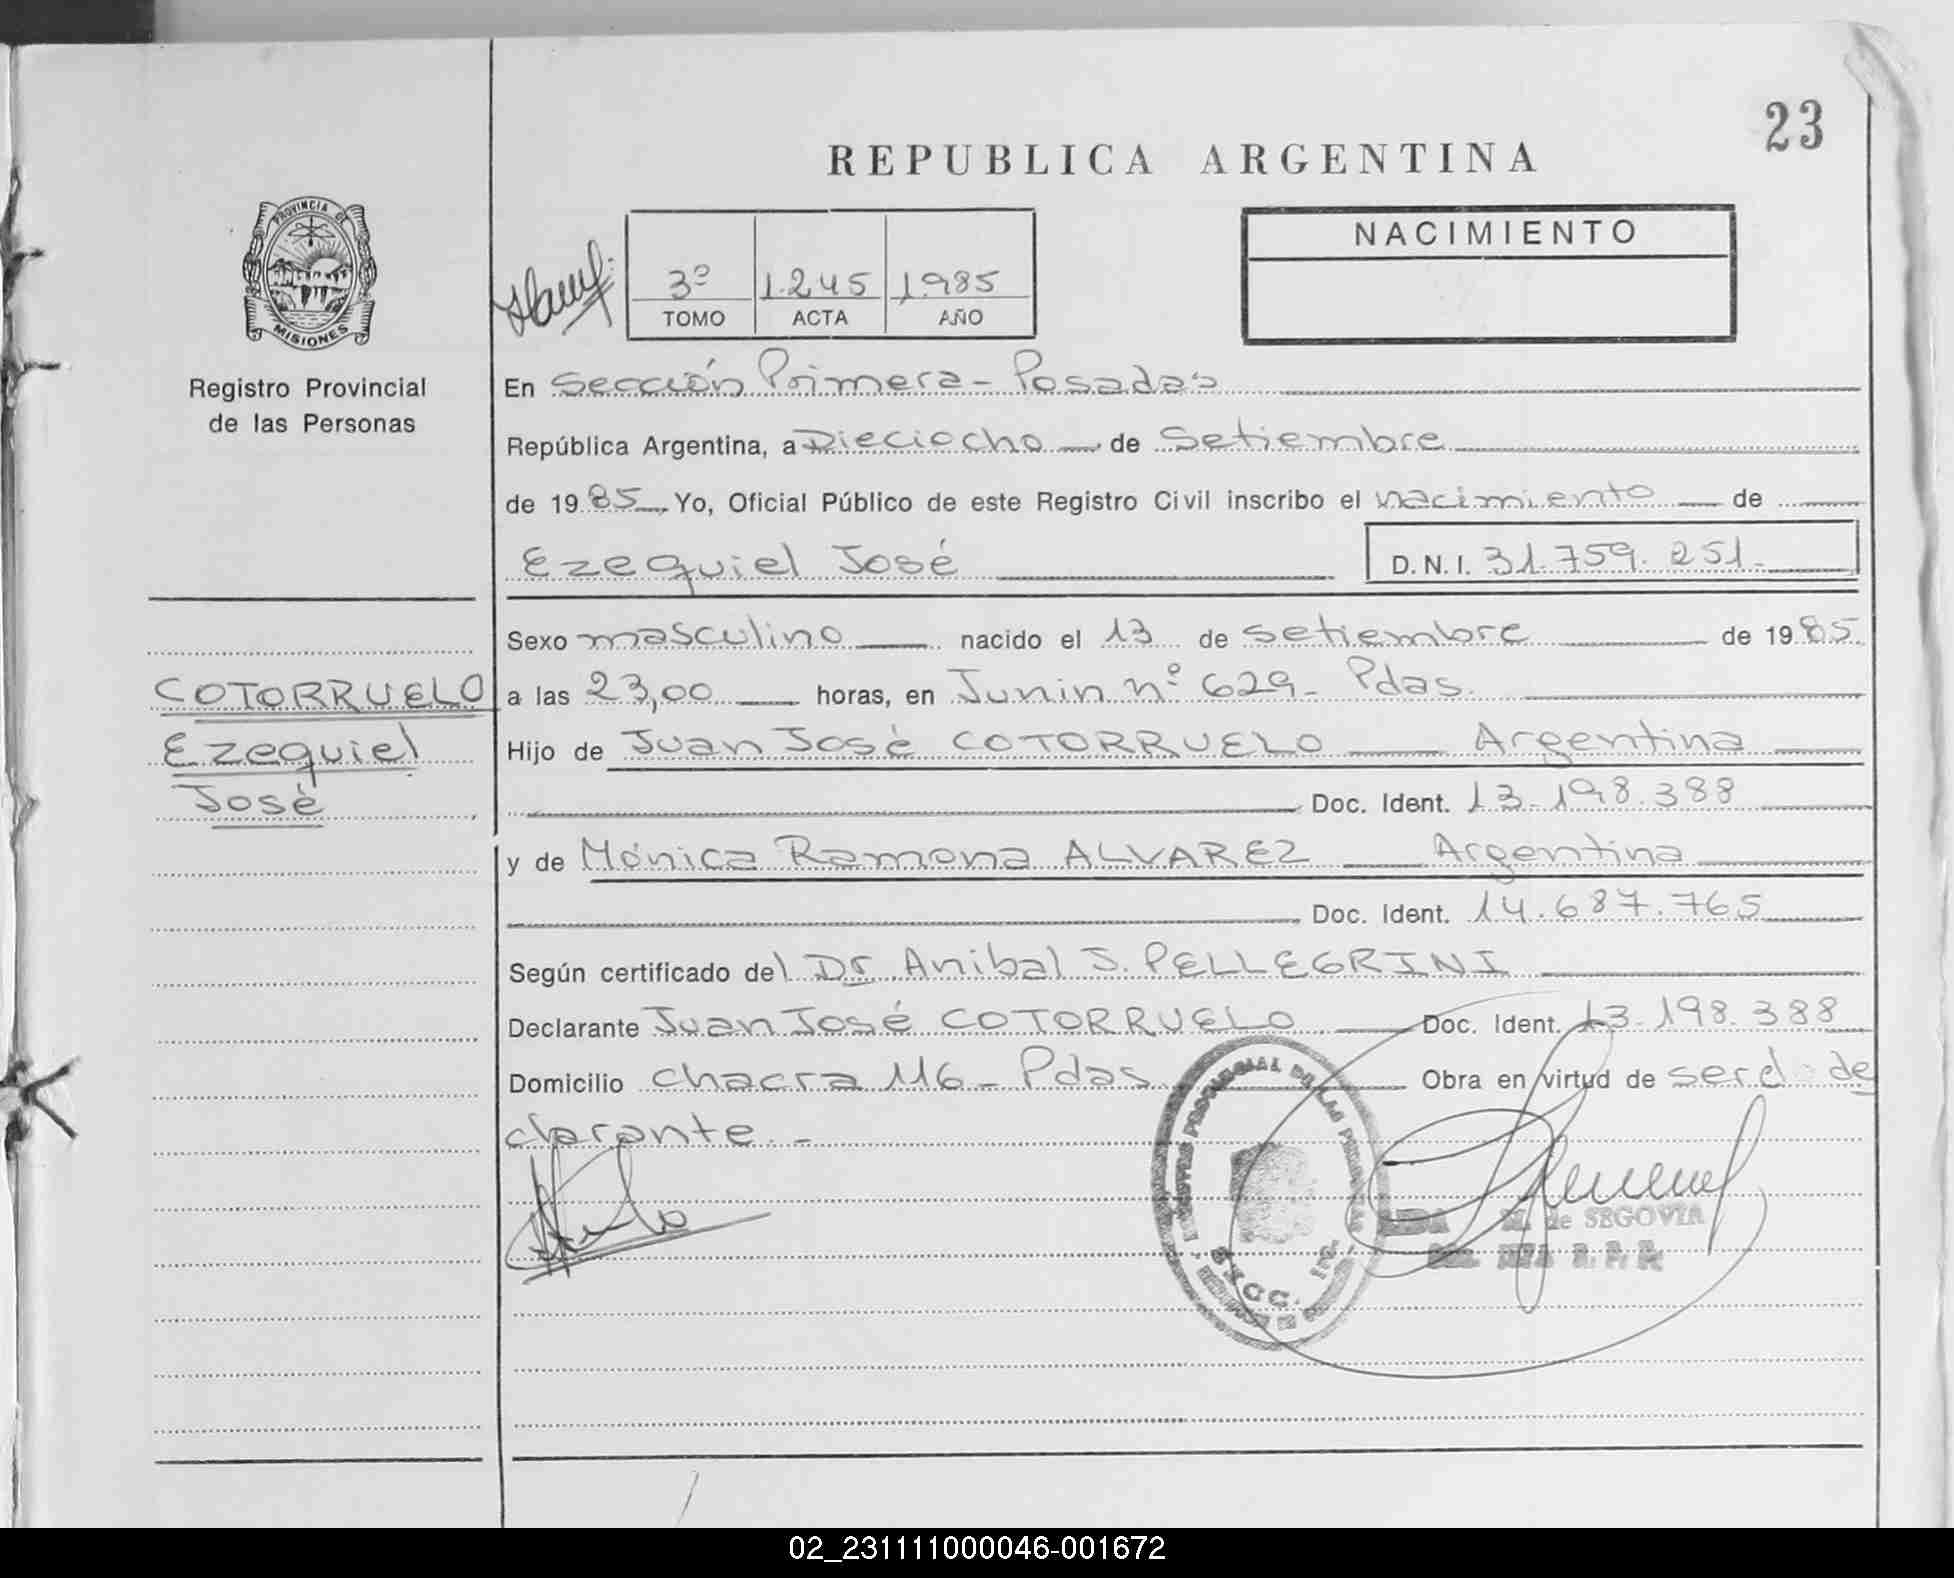 23
REPUBLICA ARGENTINA
PROVINCIA DE
MISIONES
Registro Provincial
de las Personas
3º 1.245 1.985
TOMO ACTA AÑO
NACIMIENTO
En Sección Primera - Posadas
República Argentina, a Dieciocho de Setiembre
de 1985, Yo, Oficial Público de este Registro Civil inscribo el nacimiento de
Ezequiel José D. N. I. 31.759.251.-
Sexo masculino nacido el 13 de setiembre de 1985
COTORRUELO
Ezequiel
José
a las 23,00 horas, en Junin nº 629 - Pdas.
Hijo de Juan José COTORRUELO Argentina
Doc. Ident. 13.198.388
y de Mónica Ramona ALVAREZ Argentina
Doc. Ident. 14.687.765
Según certificado del Dr Anibal J. PELLEGRINI
Declarante Juan José COTORRUELO Doc. Ident. 13.198.388
Domicilio chacra 116 - Pdas Obra en virtud de ser el de
clarante. -
M. de SEGOVIA
R. P. P.
SECC. 1ra.
02_231111000046-001672